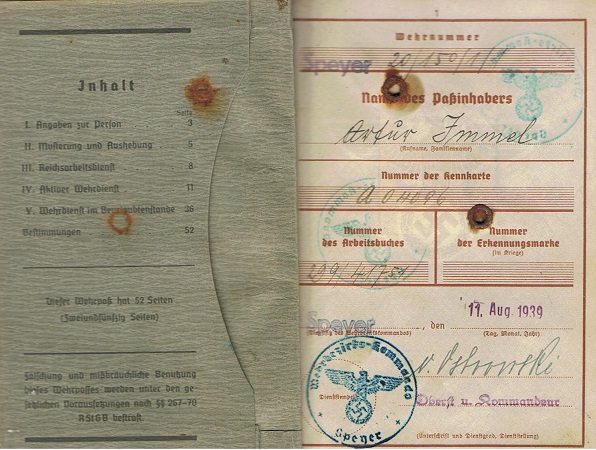 Inhalt
Seite
I. Angaben zur Person 3
II. Musterung und Aushebung 5
III. Reichsarbeitsdienst 8
IV. Aktiver Wehrdienst 11
V. Wehrdienst im Beurlaubtenstande 36
Bestimmungen 52
Dieser Wehrpaß hat 52 Seiten
(Zweiundfünfzig Seiten)
Fälschung und mißbräuchliche Benutzung
dieses Wehrpasses werden unter den ge-
setzlichen Voraussetzungen nach §§ 267-70
RStGB bestraft.
1
Wehrnummer
Speyer
Name des Paßinhabers
Artur Immel
(Rufname, Familienname)
Nummer der Kennkarte
A 04096
Nummer
des Arbeitsbuches
Nummer
der Erkennungsmarke
(im Kriege)
Speyer, den 11. Aug. 1939
(Tag, Monat, Jahr)
v. Ostrowski
Oberst u. Kommandeur
(Unterschrift und Dienstgrad, Dienststellung)
Wehrbezirks-Kommando
Speyer